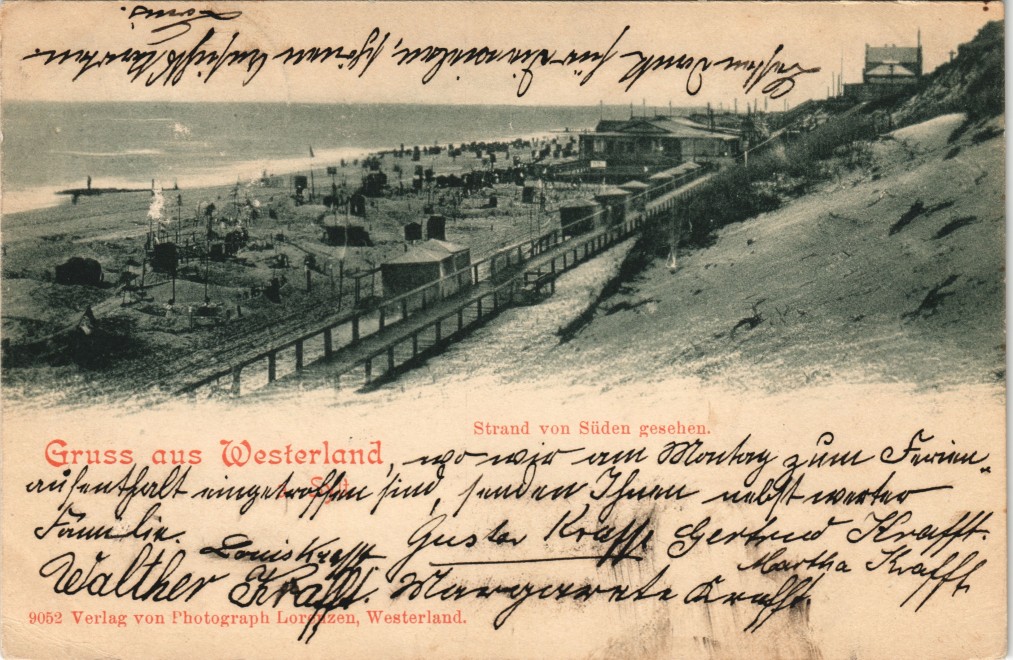 Besten Dank für die vielen, schönen Ansichtskarten.
Louis.
Strand von Süden gesehen.
Gruss aus Westerland, wo wir am Montag zum Ferien-
Sylt
aufenthalt eingetroffen sind, senden Ihnen nebst werter
Familie. Gustav Krafft. Gertrud Krafft.
Louis Krafft Martha Krafft
Walther Krafft. Margarete Krafft
9052 Verlag von Photograph Lorenzen, Westerland.